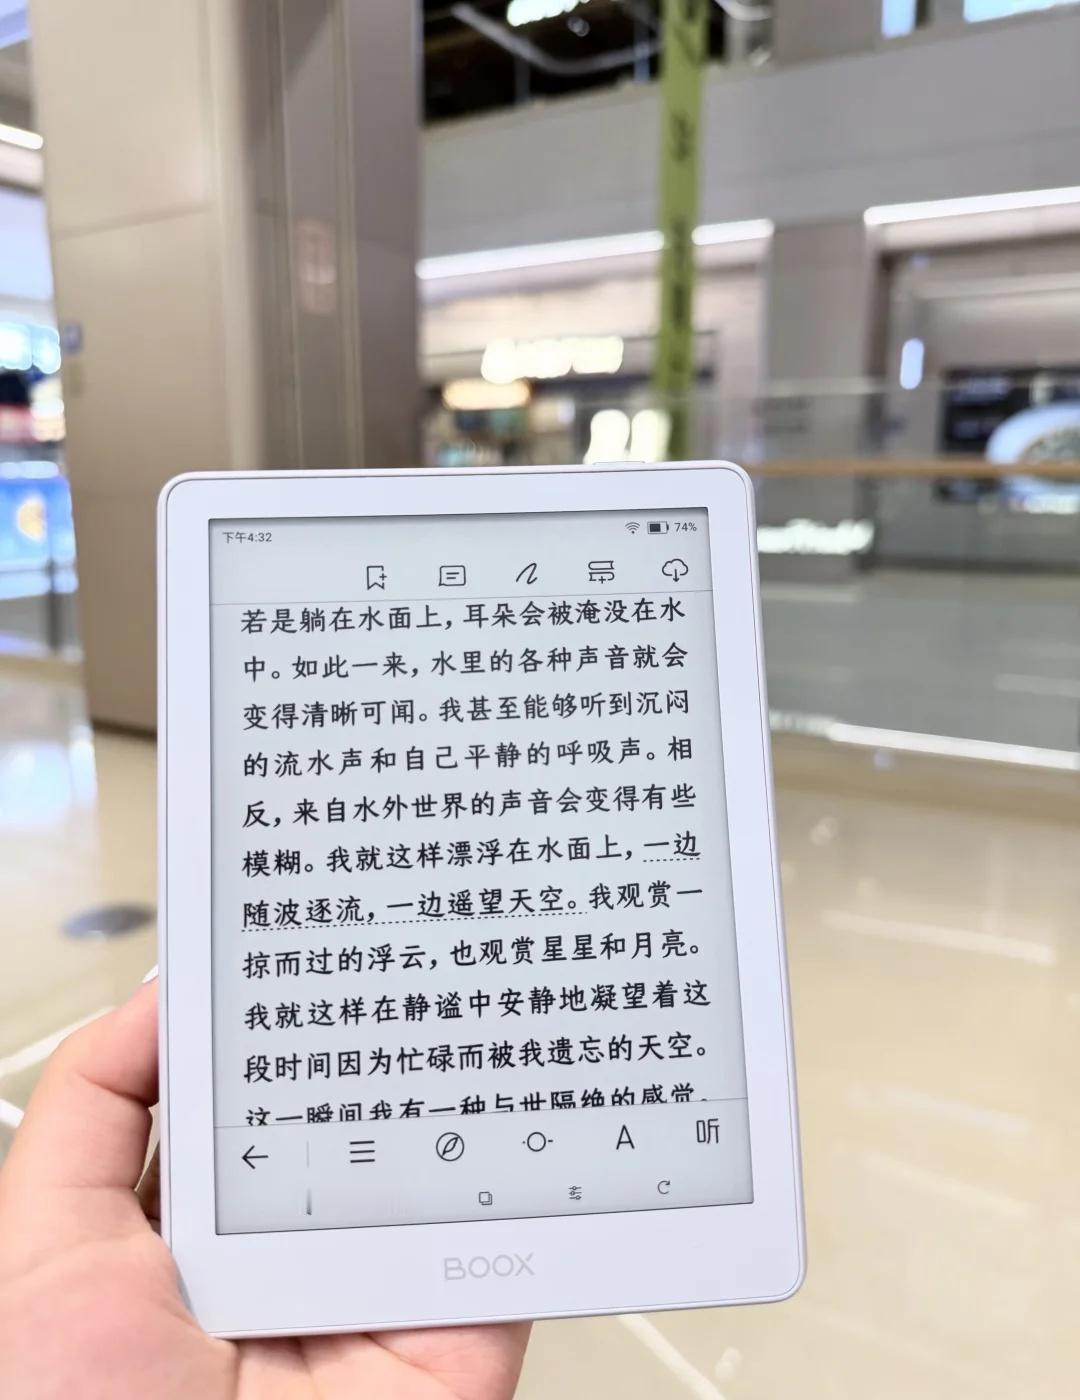 下午4:32
74%
若是躺在水面上，耳朵会被淹没在水
中。如此一来，水里的各种声音就会
变得清晰可闻。我甚至能够听到沉闷
的流水声和自己平静的呼吸声。相
反，来自水外世界的声音会变得有些
模糊。我就这样漂浮在水面上，一边
随波逐流，一边遥望天空。我观赏一
掠而过的浮云，也观赏星星和月亮。
我就这样在静谧中安静地凝望着这
段时间因为忙碌而被我遗忘的天空。
这一瞬间我有一种与世隔绝的感觉。
A
听
BOOX